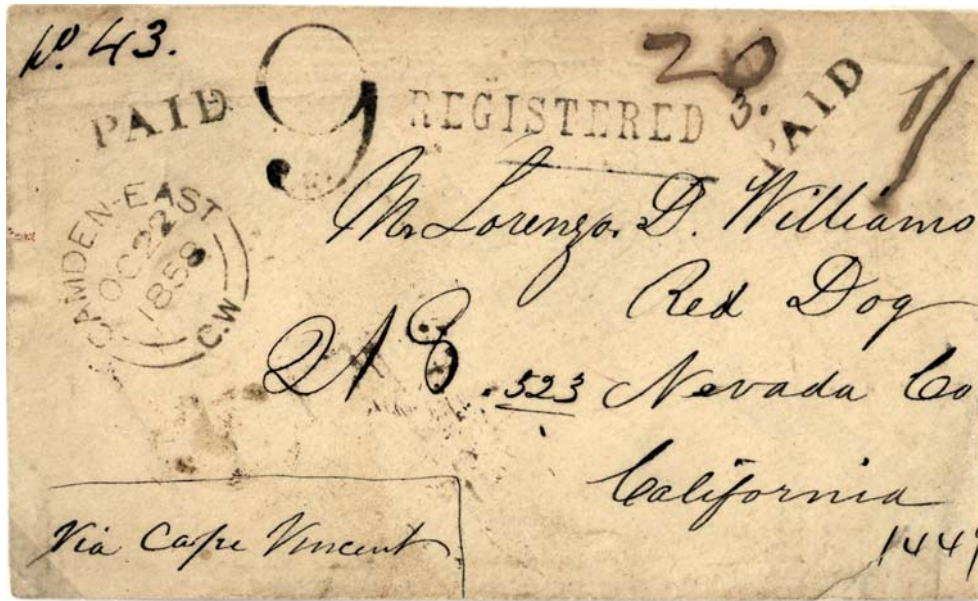 No. 43.
PAID 9 REGISTERED 3. 20 PAID
CAMDEN-EAST
OC 22
1858
C.W
Mr. Lorenzo. D. Williams
Red Dog
218 .523 Nevada Co
California
Via Cape Vincent
144